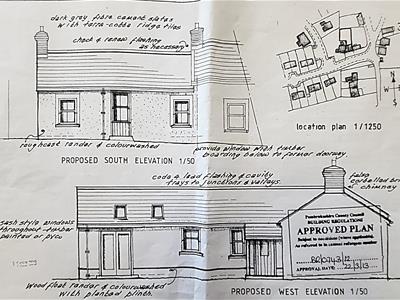 dark grey fibre cement slates
with terra-cotta ridge tiles
check & renew flashing
as necessary
roughcast render & colourwashed
provide window with timber
boarding below to former doorway.
location plan 1/1250
N
W
S
PROPOSED SOUTH ELEVATION 1/50
code 4 lead flashing & cavity
trays to junctions & valleys.
false
corbelled brick
chimney
sash style windows
throughout timber
painted or pvcu
Pembrokeshire County Council
BUILDING REGULATIONS
APPROVED PLAN
Subject to conditions (where applicable)
As referred to in consent reference number
APPROVAL DATE: 22/3/13
Woodfloat render & colourwashed
with planted plinth.
PROPOSED WEST ELEVATION 1/50